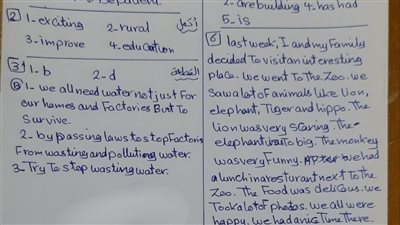 2 1-exciting 2-rural أكمل
3-improve 4-education
3 1-b 2-d القطعة
B 1- we all need water not Just For
our homes and Factories But To
Survive.
2- by passing laws to stop Factories
From wasting and polluting water.
3- Try To stop wasting water.
2- are building 4- has had
5- is
6 last week, I and my Family
decided To visit an interesting
place. we went To the Zoo. we
saw a lot of animals like Lion,
elephant, Tiger and hippo. The
Lion was very scaring. The
elephant was To big. The monkey
was very Funny. we had
a lunch in a resturant next To the
Zoo. The Food was delicous. we
Took a lot of photos. we all were
happy. we had a nice Time There.